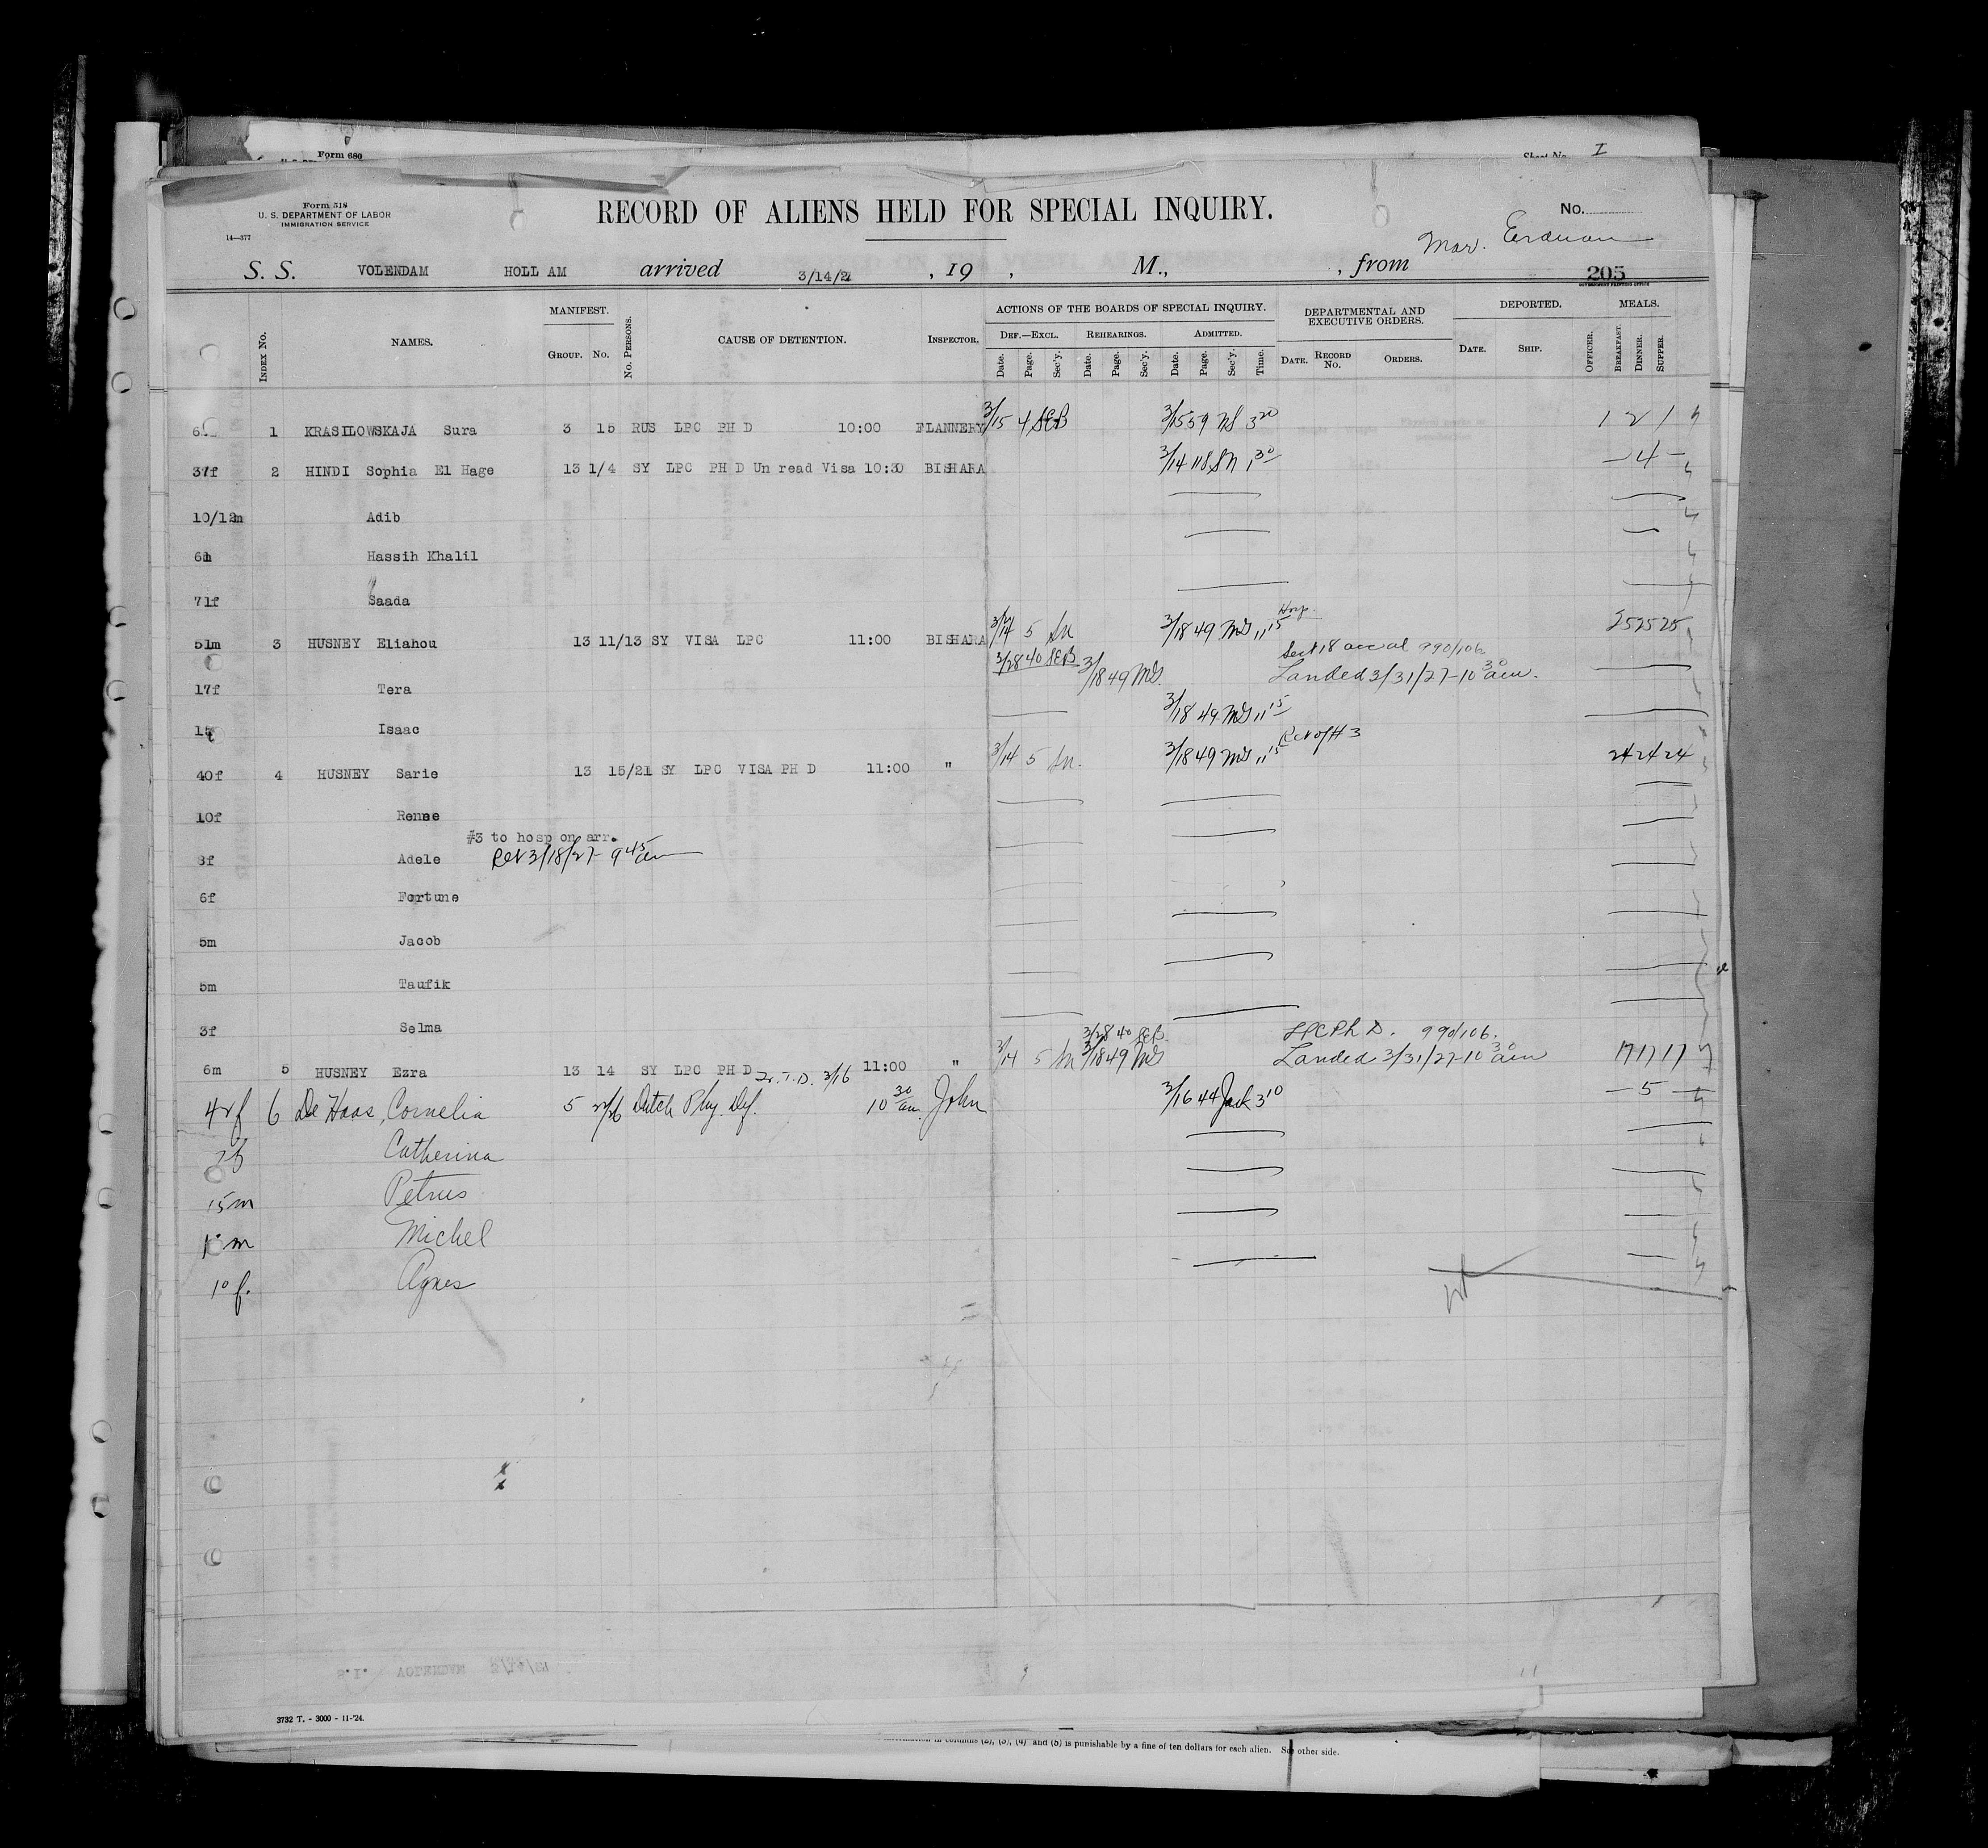 Form 680
Sheet No. I
Form 518
U. S. DEPARTMENT OF LABOR
IMMIGRATION SERVICE
14—377
RECORD OF ALIENS HELD FOR SPECIAL INQUIRY.
No.
Mar.
S. S. VOLENDAM HOLL AM arrived 3/14/2 , 19 , M., , from
205
GOVERNMENT PRINTING OFFICE
Index No. NAMES. MANIFEST. Group. No. No. Persons. CAUSE OF DETENTION. Inspector.
ACTIONS OF THE BOARDS OF SPECIAL INQUIRY. Def.—Excl. Rehearings. Admitted.
Date. Page. Sec'y. Date. Page. Sec'y. Date. Page. Sec'y. Time.
DEPARTMENTAL AND EXECUTIVE ORDERS. Date. Record No. Orders.
DEPORTED. Date. Ship. Officer. MEALS. Breakfast. Dinner. Supper.
1 KRASILOWSKAJA Sura 3 15 RUS LPC PH D 10:00 FLANNERY 3/15 4 SEB 3/15 59 NS 3 20 1 2 1
37f 2 HINDI Sophia El Hage 13 1/4 SY LPC PH D Un read Visa 10:30 BISHARA 3/14 118 SN 1 30 — 4 —
10/12m Adib
6m Hassih Khalil
71f Saada
51m 3 HUSNEY Eliahou 13 11/13 SY VISA LPC 11:00 BISHARA 3/14 5 SN 3/18 49 MS 11 15 Hosp. 25 25 25
3/28 40 SEB 3/18 49 MS. Sect 18 990/106
17f Tera Landed 3/31/27-10 30 am.
3/18 49 MS 11 15
15 Isaac
40f 4 HUSNEY Sarie 13 15/21 SY LPC VISA PH D 11:00 " 3/14 5 SN. 3/18 49 MS 11 15 Rel of #3 24 24 24
10f Renee
#3 to hosp on arr.
8f Adele Ret 3/18/27- 9 45 am
6f Fortune
5m Jacob
5m Taufik
3f Selma
3/28 40 SEB. LPC Ph D. 990/106.
6m 5 HUSNEY Ezra 13 14 SY LPC PH D 3/16 11:00 " 3/14 5 SN 3/18 49 MS Landed 3/31/27-10 30 am 17 17 17
42f 6 De Haas, Cornelia 5 22/26 Dutch Phy. Def. 10 30 am. John 3/16 44 Jack 3 10 — 5 —
Catherina
15m Petrus
m Michel
10 f. Agnes
S.I. VOLENDAM
3732 T. - 3000 - 11-'24.
in columns (2), (3), (4) and (5) is punishable by a fine of ten dollars for each alien. See other side.